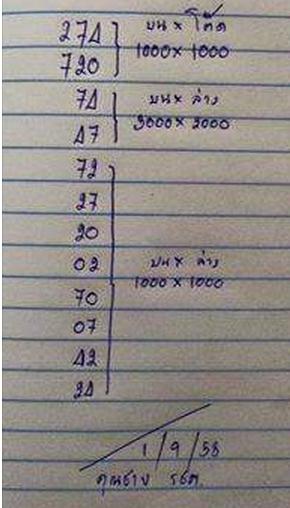 274 บน x โต๊ด
720 1000 x 1000
74 บน x ล่าง
47 x 2000
72
27
20
02
บน x ล่าง
70 1000 x 1000
07
42
24
1/9/58